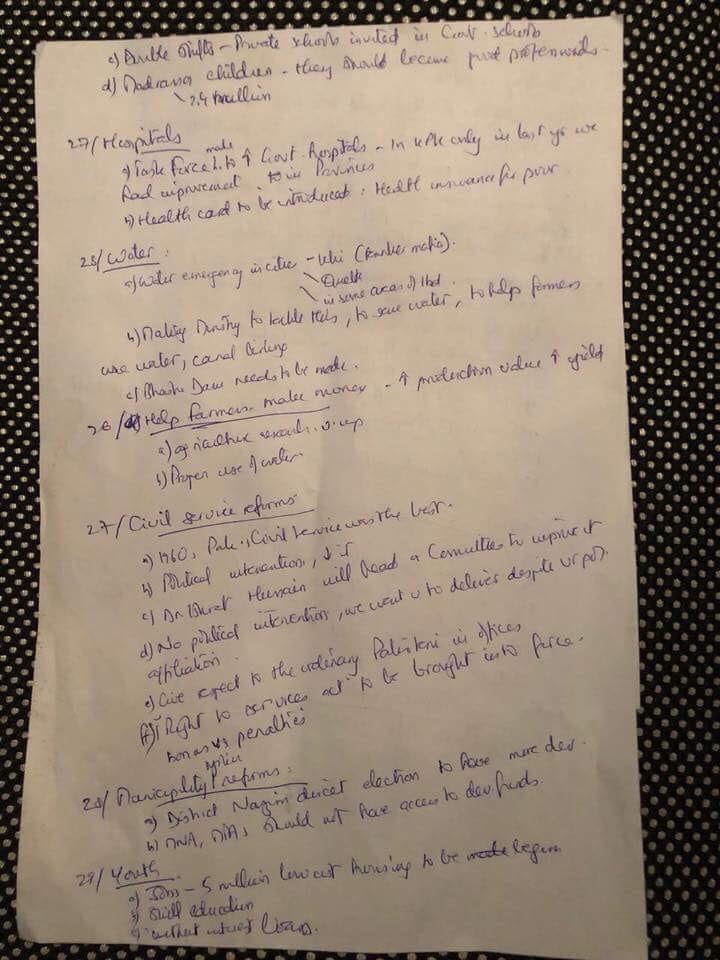 c) Double Shifts - Private schools invited in Govt. schools
d) Madrassa children - they should become good professionals.
2.4 million
27/ Hospitals
a) Task Force to be made to ↑ Govt. Hospitals - In KPK only in last yr we
had improvement to in Provinces
b) Health card to be introduced. Health insurance for poor
25/ Water:
a) Water emergency in cities - Khi (tanker mafia).
Quetta
in some areas of Ibd.
b) Making Ministry to tackle this, to save water, to help farmers
use water, canal lining
c) Bhasha Dam needs to be made.
26/ Help Farmers make money - ↑ production value ↑ yield
a) agriculture research
b) Proper use of water.
27/ Civil service reforms
a) 1960, Pak. Civil Service was the best.
b) Political intervention, ↓ it
c) Dr. Ishrat Hussain will head a Committee to improve it
d) No political intervention, we want u to deliver despite ur pol.
affiliation.
e) Give respect to the ordinary Pakistani in offices
f) Right to services act to be brought into force.
bonus vs penalties
system
28/ Municipality reforms:
a) District Nazim direct election to have more dev.
b) MNA, MPAs should not have access to dev. funds.
29/ Youth
a) Jobs - 5 million low cost housing to be made begun
b) Skill education
c) without interest loans.